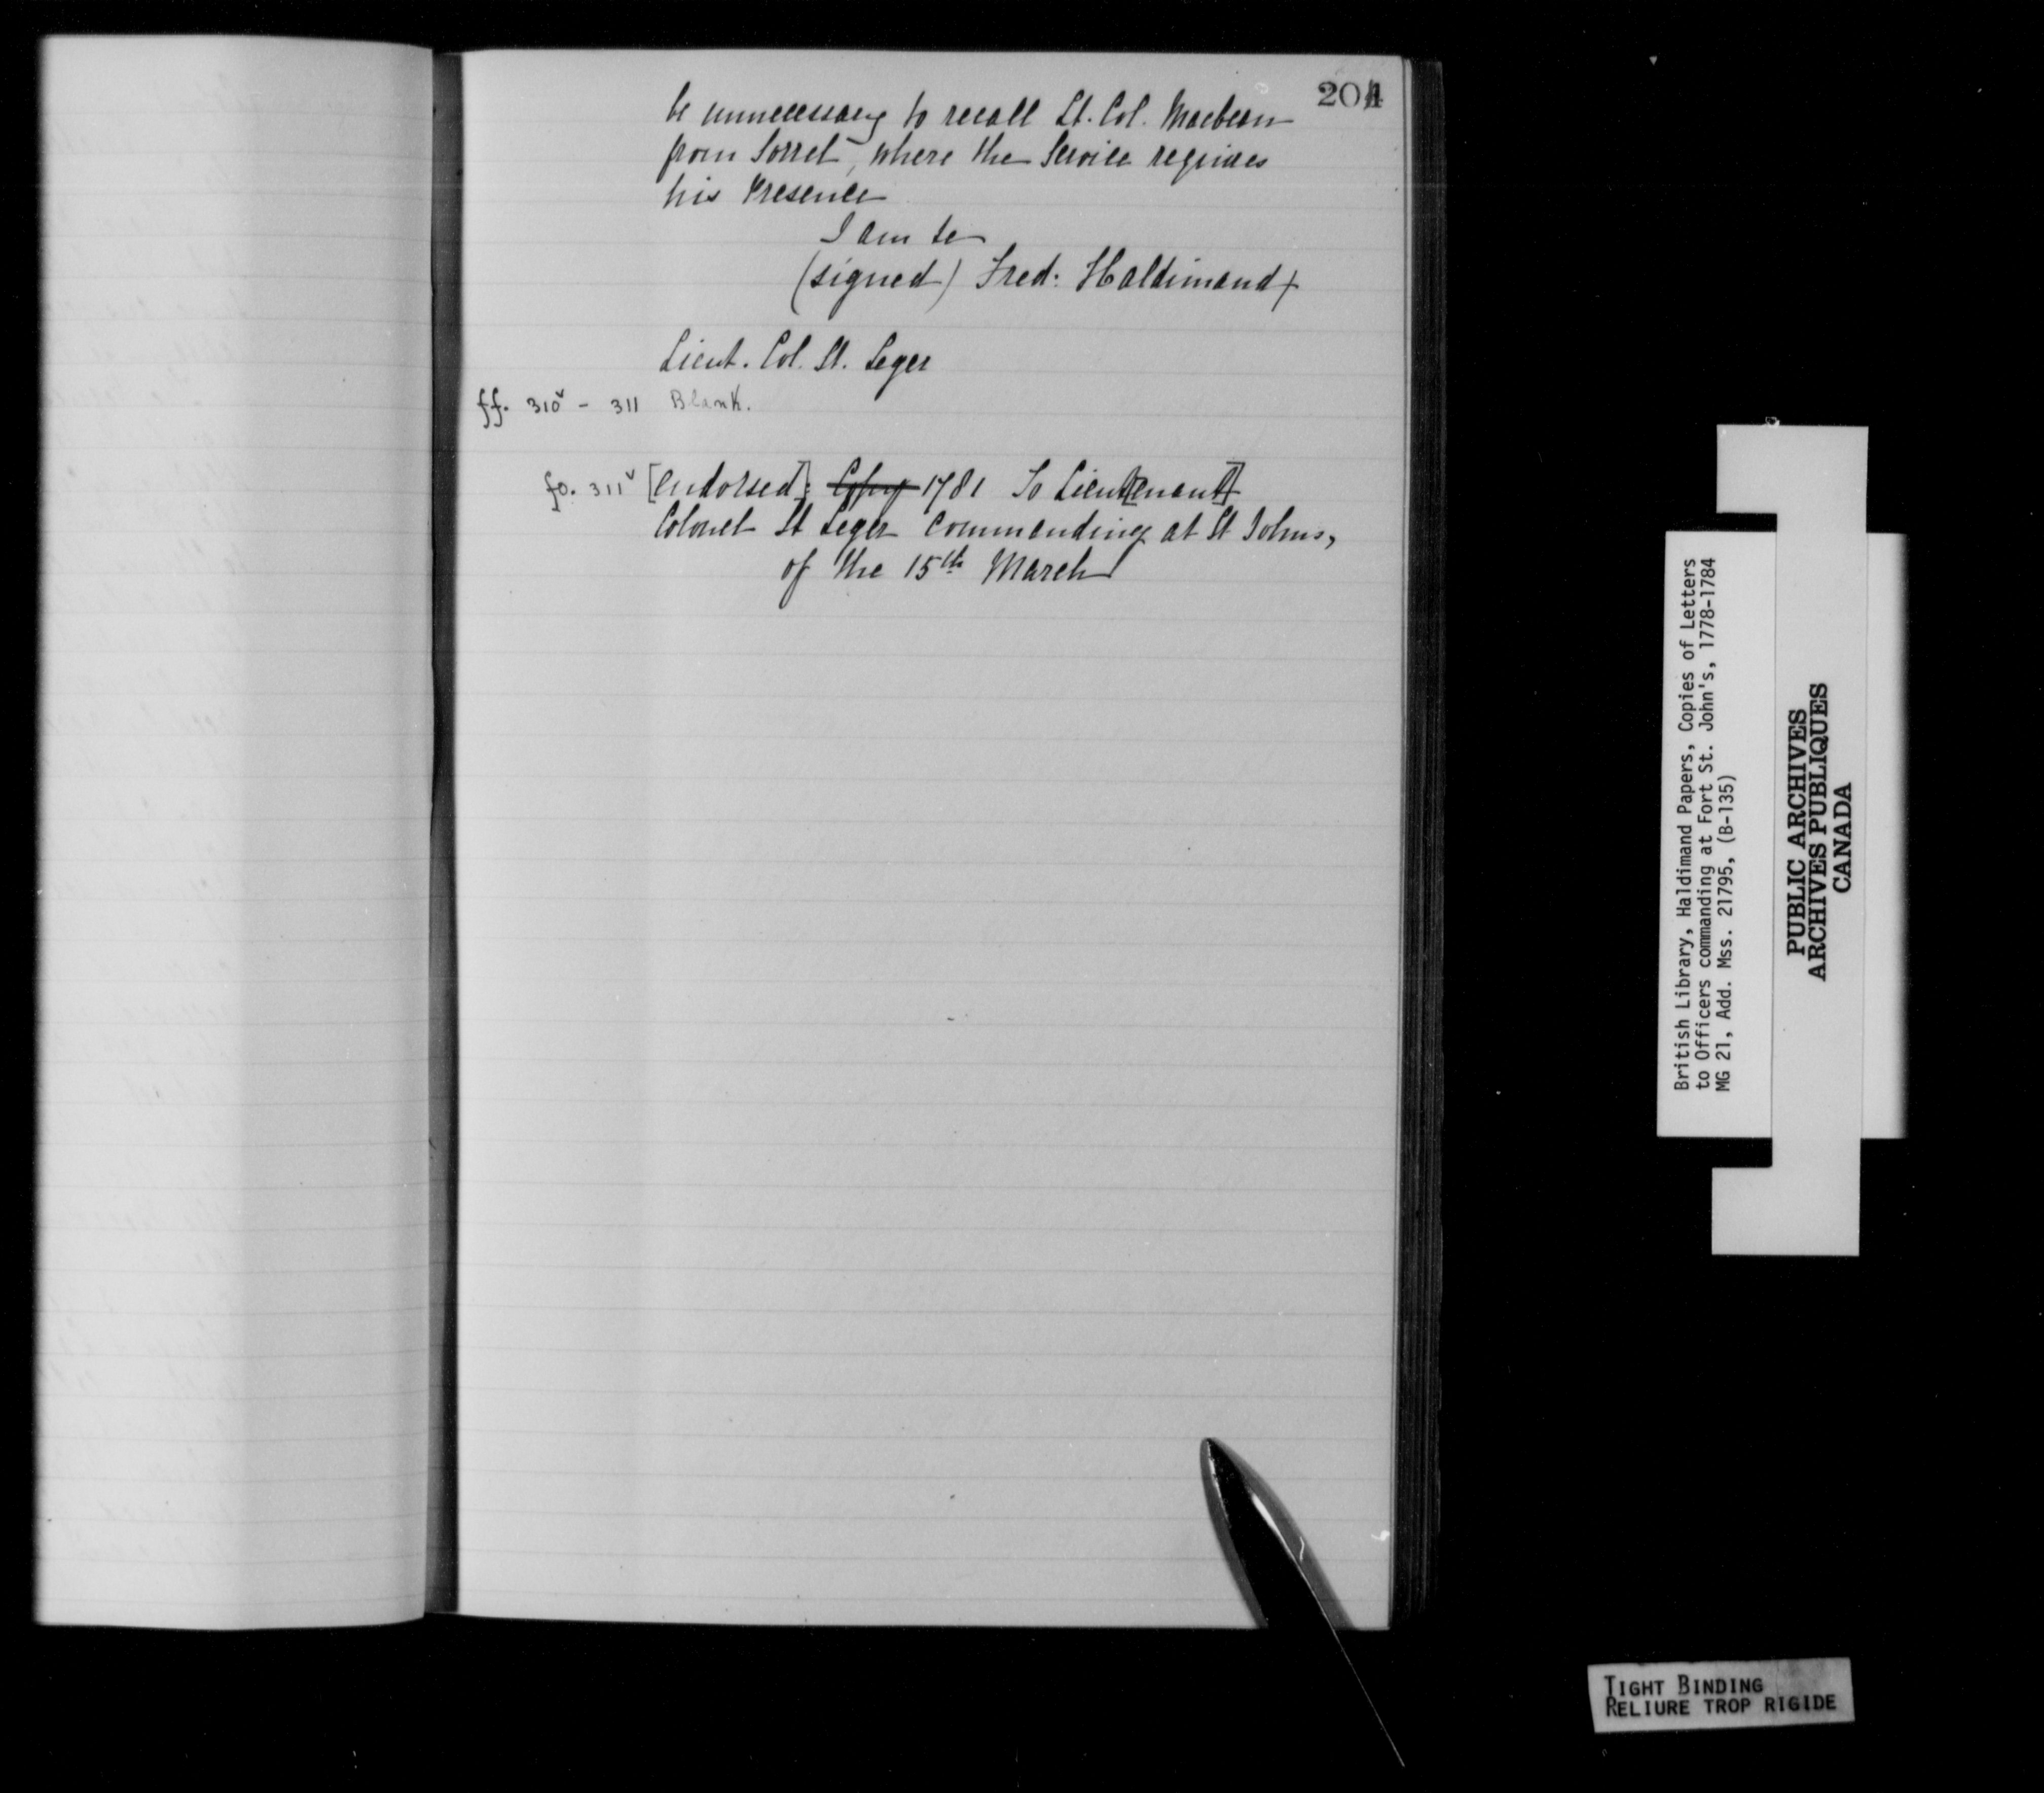 204
be unnecessary to recall Lt. Col. Macbean
from Sorrel, where the Service requires
his Presence
I am &c
(signed) Fred: Haldimand
Lieut. Col. St. Leger
ff. 310v - 311 Blank.
fo. 311v [endorsed]: Copy 1781 To Lieut[enant]
Colonel St Leger Commanding at St Johns,
of the 15th March
British Library, Haldimand Papers, Copies of Letters
to Officers commanding at Fort St. John's, 1778-1784
MG 21, Add. Mss. 21795, (B-135)
PUBLIC ARCHIVES
ARCHIVES PUBLIQUES
CANADA
TIGHT BINDING
RELIURE TROP RIGIDE